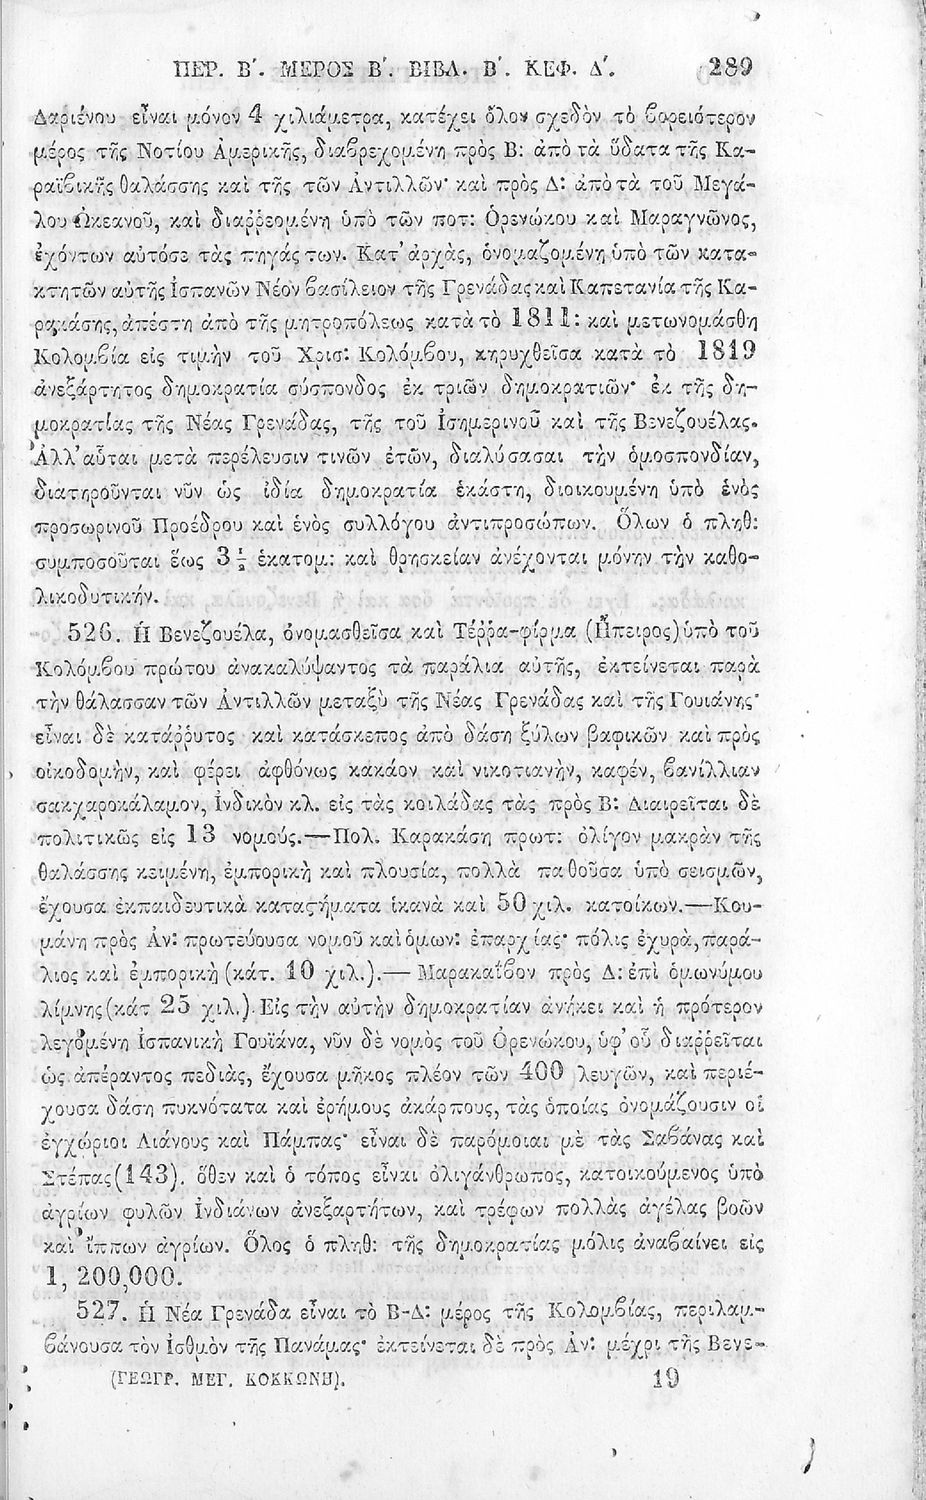 ΠΕΡ. Β΄. ΜΕΡΟΣ Β΄. ΒΙΒΛ. Β΄. ΚΕΦ. Δ΄. 289
Δαριένου εἶναι μόνον 4 χιλιάμετρα, κατέχει ὅλον σχεδὸν τὸ βορειότερον
μέρος τῆς Νοτίου Ἀμερικῆς, διαβρεχομένη πρὸς Β: ἀπὸ τὰ ὕδατα τῆς Κα-
ραϊβικῆς θαλάσσης καὶ τῆς τῶν Ἀντιλλῶν· καὶ πρὸς Δ: ἀπὸ τὰ τοῦ Μεγά-
λου Ὠκεανοῦ, καὶ διαῤῥεομένη ὑπὸ τῶν ποτ: Ὀρενώκου καὶ Μαραγνῶνος,
ἐχόντων αὐτόσε τὰς πηγάς των. Κατ' ἀρχὰς, ὀνομαζομένη ὑπὸ τῶν κατα-
κτητῶν αὐτῆς Ἱσπανῶν Νέον βασίλειον τῆς Γρενάδας καὶ Καπετανία τῆς Κα-
ρακάσης, ἀπέστη ἀπὸ τῆς μητροπόλεως κατὰ τὸ 1811: καὶ μετωνομάσθη
Κολομβία εἰς τιμὴν τοῦ Χρισ: Κολόμβου, κηρυχθεῖσα κατὰ τὸ 1819
ἀνεξάρτητος δημοκρατία σύσπονδος ἐκ τριῶν δημοκρατιῶν· ἐκ τῆς δη-
μοκρατίας τῆς Νέας Γρενάδας, τῆς τοῦ Ἰσημερινοῦ καὶ τῆς Βενεζουέλας.
Ἀλλ' αὗται μετὰ περέλευσιν τινῶν ἐτῶν, διαλύσασαι τὴν ὁμοσπονδίαν,
διατηροῦνται νῦν ὡς ἰδία δημοκρατία ἑκάστη, διοικουμένη ὑπὸ ἑνὸς
προσωρινοῦ Προέδρου καὶ ἑνὸς συλλόγου ἀντιπροσώπων. Ὅλων ὁ πληθ:
συμποσοῦται ἕως 3 ½ ἑκατομ: καὶ θρησκείαν ἀνέχονται μόνην τὴν καθο-
λικοδυτικήν.
526. Ἡ Βενεζουέλα, ὀνομασθεῖσα καὶ Τέῤῥα-φίρμα (Ἤπειρος) ὑπὸ τοῦ
Κολόμβου πρώτου ἀνακαλύψαντος τὰ παράλια αὐτῆς, ἐκτείνεται παρὰ
τὴν θάλασσαν τῶν Ἀντιλλῶν μεταξὺ τῆς Νέας Γρενάδας καὶ τῆς Γουιάνης·
εἶναι δὲ κατάῤῥυτος καὶ κατάσκεπος ἀπὸ δάση ξύλων βαφικῶν καὶ πρὸς
οἰκοδομὴν, καὶ φέρει ἀφθόνως κακάον καὶ νικοτιανὴν, καφέν, βανίλλιαν
σακχαροκάλαμον, Ἰνδικὸν κλ. εἰς τὰς κοιλάδας τὰς πρὸς Β: Διαιρεῖται δὲ
πολιτικῶς εἰς 13 νομούς.—Πολ. Καρακάση πρωτ: ὀλίγον μακρὰν τῆς
θαλάσσης κειμένη, ἐμπορικὴ καὶ πλουσία, πολλὰ παθοῦσα ὑπὸ σεισμῶν,
ἔχουσα ἐκπαιδευτικὰ καταςήματα ἱκανὰ καὶ 50 χιλ. κατοίκων.—Κου-
μάνη πρὸς Ἀν: πρωτεύουσα νομοῦ καὶ ὁμων: ἐπαρχίας· πόλις ἐχυρὰ, παρά-
λιος καὶ ἐμπορικὴ (κάτ. 10 χιλ.).— Μαρακαΐβον πρὸς Δ: ἐπὶ ὁμωνύμου
λίμνης (κάτ 25 χιλ.). Εἰς τὴν αὐτὴν δημοκρατίαν ἀνήκει καὶ ἡ πρότερον
λεγομένη Ἱσπανικὴ Γουϊάνα, νῦν δὲ νομὸς τοῦ Ὀρενώκου, ὑφ' οὗ διαῤῥεῖται
ὡς ἀπέραντος πεδιὰς, ἔχουσα μῆκος πλέον τῶν 400 λευγῶν, καὶ περιέ-
χουσα δάση πυκνότατα καὶ ἐρήμους ἀκάρπους, τὰς ὁποίας ὀνομάζουσιν οἱ
ἐγχώριοι Λιάνους καὶ Πάμπας· εἶναι δὲ παρόμοιαι μὲ τὰς Σαβάνας καὶ
Στέπας (143). ὅθεν καὶ ὁ τόπος εἶναι ὀλιγάνθρωπος, κατοικούμενος ὑπὸ
ἀγρίων φυλῶν Ἰνδιάνων ἀνεξαρτήτων, καὶ τρέφων πολλὰς ἀγέλας βοῶν
καὶ ἵππων ἀγρίων. Ὅλος ὁ πληθ: τῆς δημοκρατίας μόλις ἀναβαίνει εἰς
1, 200,000.
527. Ἡ Νέα Γρενάδα εἶναι τὸ Β-Δ: μέρος τῆς Κολομβίας, περιλαμ-
βάνουσα τὸν Ἰσθμὸν τῆς Πανάμας· ἐκτείνεται δὲ πρὸς Ἀν: μέχρι τῆς Βενε-
(ΓΕΩΓΡ. ΜΕΓ. ΚΟΚΚΩΝΗ). 19